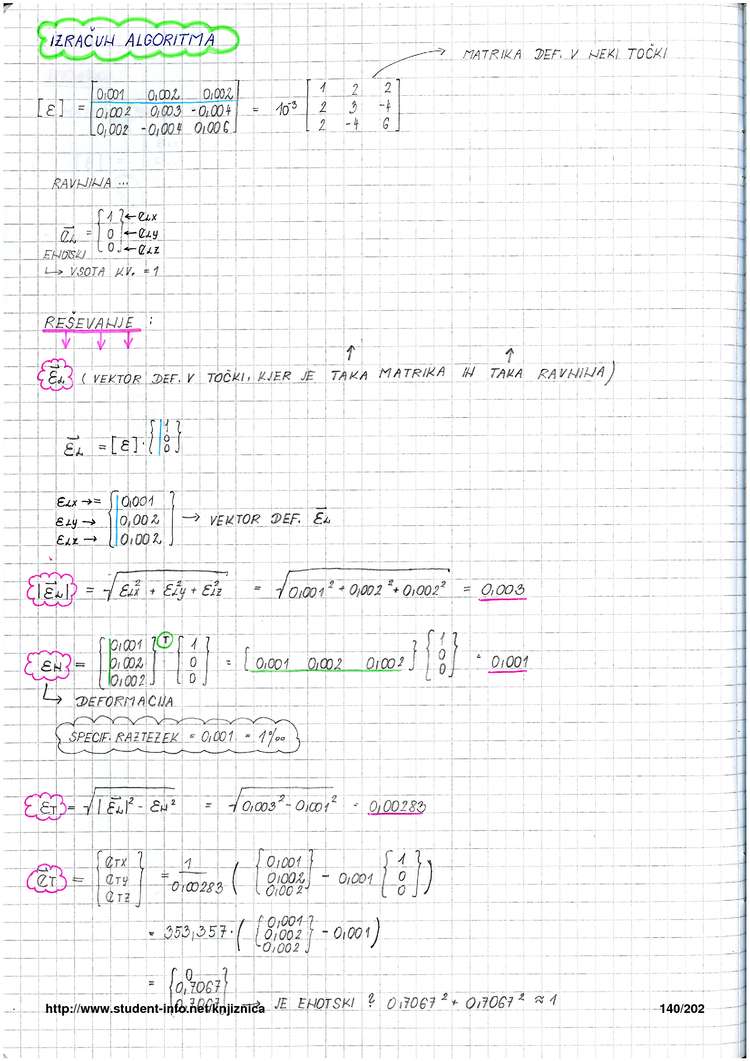 IZRAČUN ALGORITMA
MATRIKA DEF. V NEKI TOČKI
[ε] = [0,001 0,002 0,002
0,002 0,003 -0,004
0,002 -0,004 0,006] = 10⁻³ [1 2 2
2 3 -4
2 -4 6]
RAVNINA ...
e⃗N = {1 ← eNx
0 ← eNy
0} ← eNz
ENOTSKI
↳ VSOTA KV. = 1
REŠEVANJE :
ε⃗N (VEKTOR DEF. V TOČKI, KJER JE TAKA MATRIKA IN TAKA RAVNINA)
ε⃗N = [ε] · {1
0
0}
εNx → = {0,001
εNy → 0,002 → VEKTOR DEF. ε⃗N
εNz → 0,002}
|ε⃗N| = √(εNx² + εNy² + εNz²) = √(0,001² + 0,002² + 0,002²) = 0,003
εN = {0,001
0,002
0,002}ᵀ {1
0
0} = [0,001 0,002 0,002] {1
0
0} = 0,001
↳ DEFORMACIJA
SPECIF. RAZTEZEK = 0,001 = 1‰
εT = √(|ε⃗N|² - εN²) = √(0,003² - 0,001²) = 0,00283
e⃗T = {eTx
eTy
eTz} = 1/0,00283 ({0,001
0,002
0,002} - 0,001 {1
0
0})
= 353,357 · ({0,001
0,002
0,002} - 0,001)
= {0
0,7067
0,7067} → JE ENOTSKI ? 0,7067² + 0,7067² ≈ 1
http://www.student-info.net/knjiznica
140/202